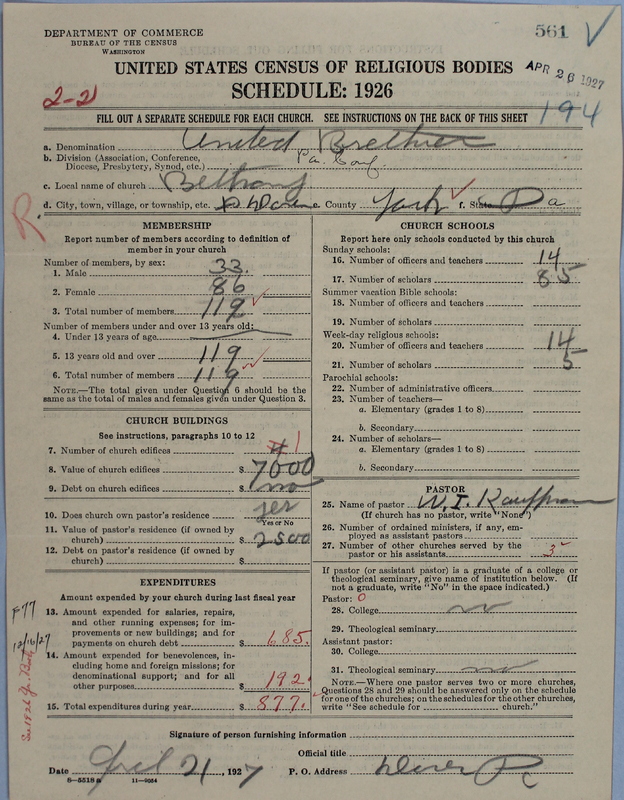 DEPARTMENT OF COMMERCE
BUREAU OF THE CENSUS
WASHINGTON
561
APR 26 1927
UNITED STATES CENSUS OF RELIGIOUS BODIES
SCHEDULE: 1926
2-21
194
FILL OUT A SEPARATE SCHEDULE FOR EACH CHURCH. SEE INSTRUCTIONS ON THE BACK OF THIS SHEET
a. Denomination United Brethren
b. Division (Association, Conference, Diocese, Presbytery, Synod, etc.) Pa. Conf
c. Local name of church Bethany
d. City, town, village, or township, etc. County York f. State Pa
R.
MEMBERSHIP
Report number of members according to definition of
member in your church
Number of members, by sex:
1. Male 33
2. Female 86
3. Total number of members 119
Number of members under and over 13 years old:
4. Under 13 years of age
5. 13 years old and over 119
6. Total number of members 119
NOTE.—The total given under Question 6 should be the
same as the total of males and females given under Question 3.
CHURCH BUILDINGS
See instructions, paragraphs 10 to 12
7. Number of church edifices 1
8. Value of church edifices $ 7000
9. Debt on church edifices $ no
10. Does church own pastor's residence yes
Yes or No
11. Value of pastor's residence (if owned by
church) $ 2500
12. Debt on pastor's residence (if owned by
church) $
EXPENDITURES
Amount expended by your church during last fiscal year
13. Amount expended for salaries, repairs,
and other running expenses; for im-
provements or new buildings; and for
payments on church debt $ 685.
14. Amount expended for benevolences, in-
cluding home and foreign missions; for
denominational support; and for all
other purposes $ 192.
15. Total expenditures during year $ 877.
F77
12/16/27
CHURCH SCHOOLS
Report here only schools conducted by this church
Sunday schools:
16. Number of officers and teachers 14
17. Number of scholars 85
Summer vacation Bible schools:
18. Number of officers and teachers
19. Number of scholars
Week-day religious schools:
20. Number of officers and teachers 14
21. Number of scholars 5
Parochial schools:
22. Number of administrative officers
23. Number of teachers—
a. Elementary (grades 1 to 8)
b. Secondary
24. Number of scholars—
a. Elementary (grades 1 to 8)
b. Secondary
PASTOR
25. Name of pastor W. I. Kauffman
(If church has no pastor, write "None")
26. Number of ordained ministers, if any, em-
ployed as assistant pastors
27. Number of other churches served by the
pastor or his assistants 3
If pastor (or assistant pastor) is a graduate of a college or
theological seminary, give name of institution below. (If
not a graduate, write "No" in the space indicated.)
Pastor: 0
28. College no
29. Theological seminary
Assistant pastor:
30. College
31. Theological seminary no
NOTE.—Where one pastor serves two or more churches,
Questions 28 and 29 should be answered only on the schedule
for one of the churches; on the schedules for the other churches,
write "See schedule for church."
Signature of person furnishing information
Official title
Date April 21, 1927 P. O. Address Dover Pa
8—5518 a 11—9054